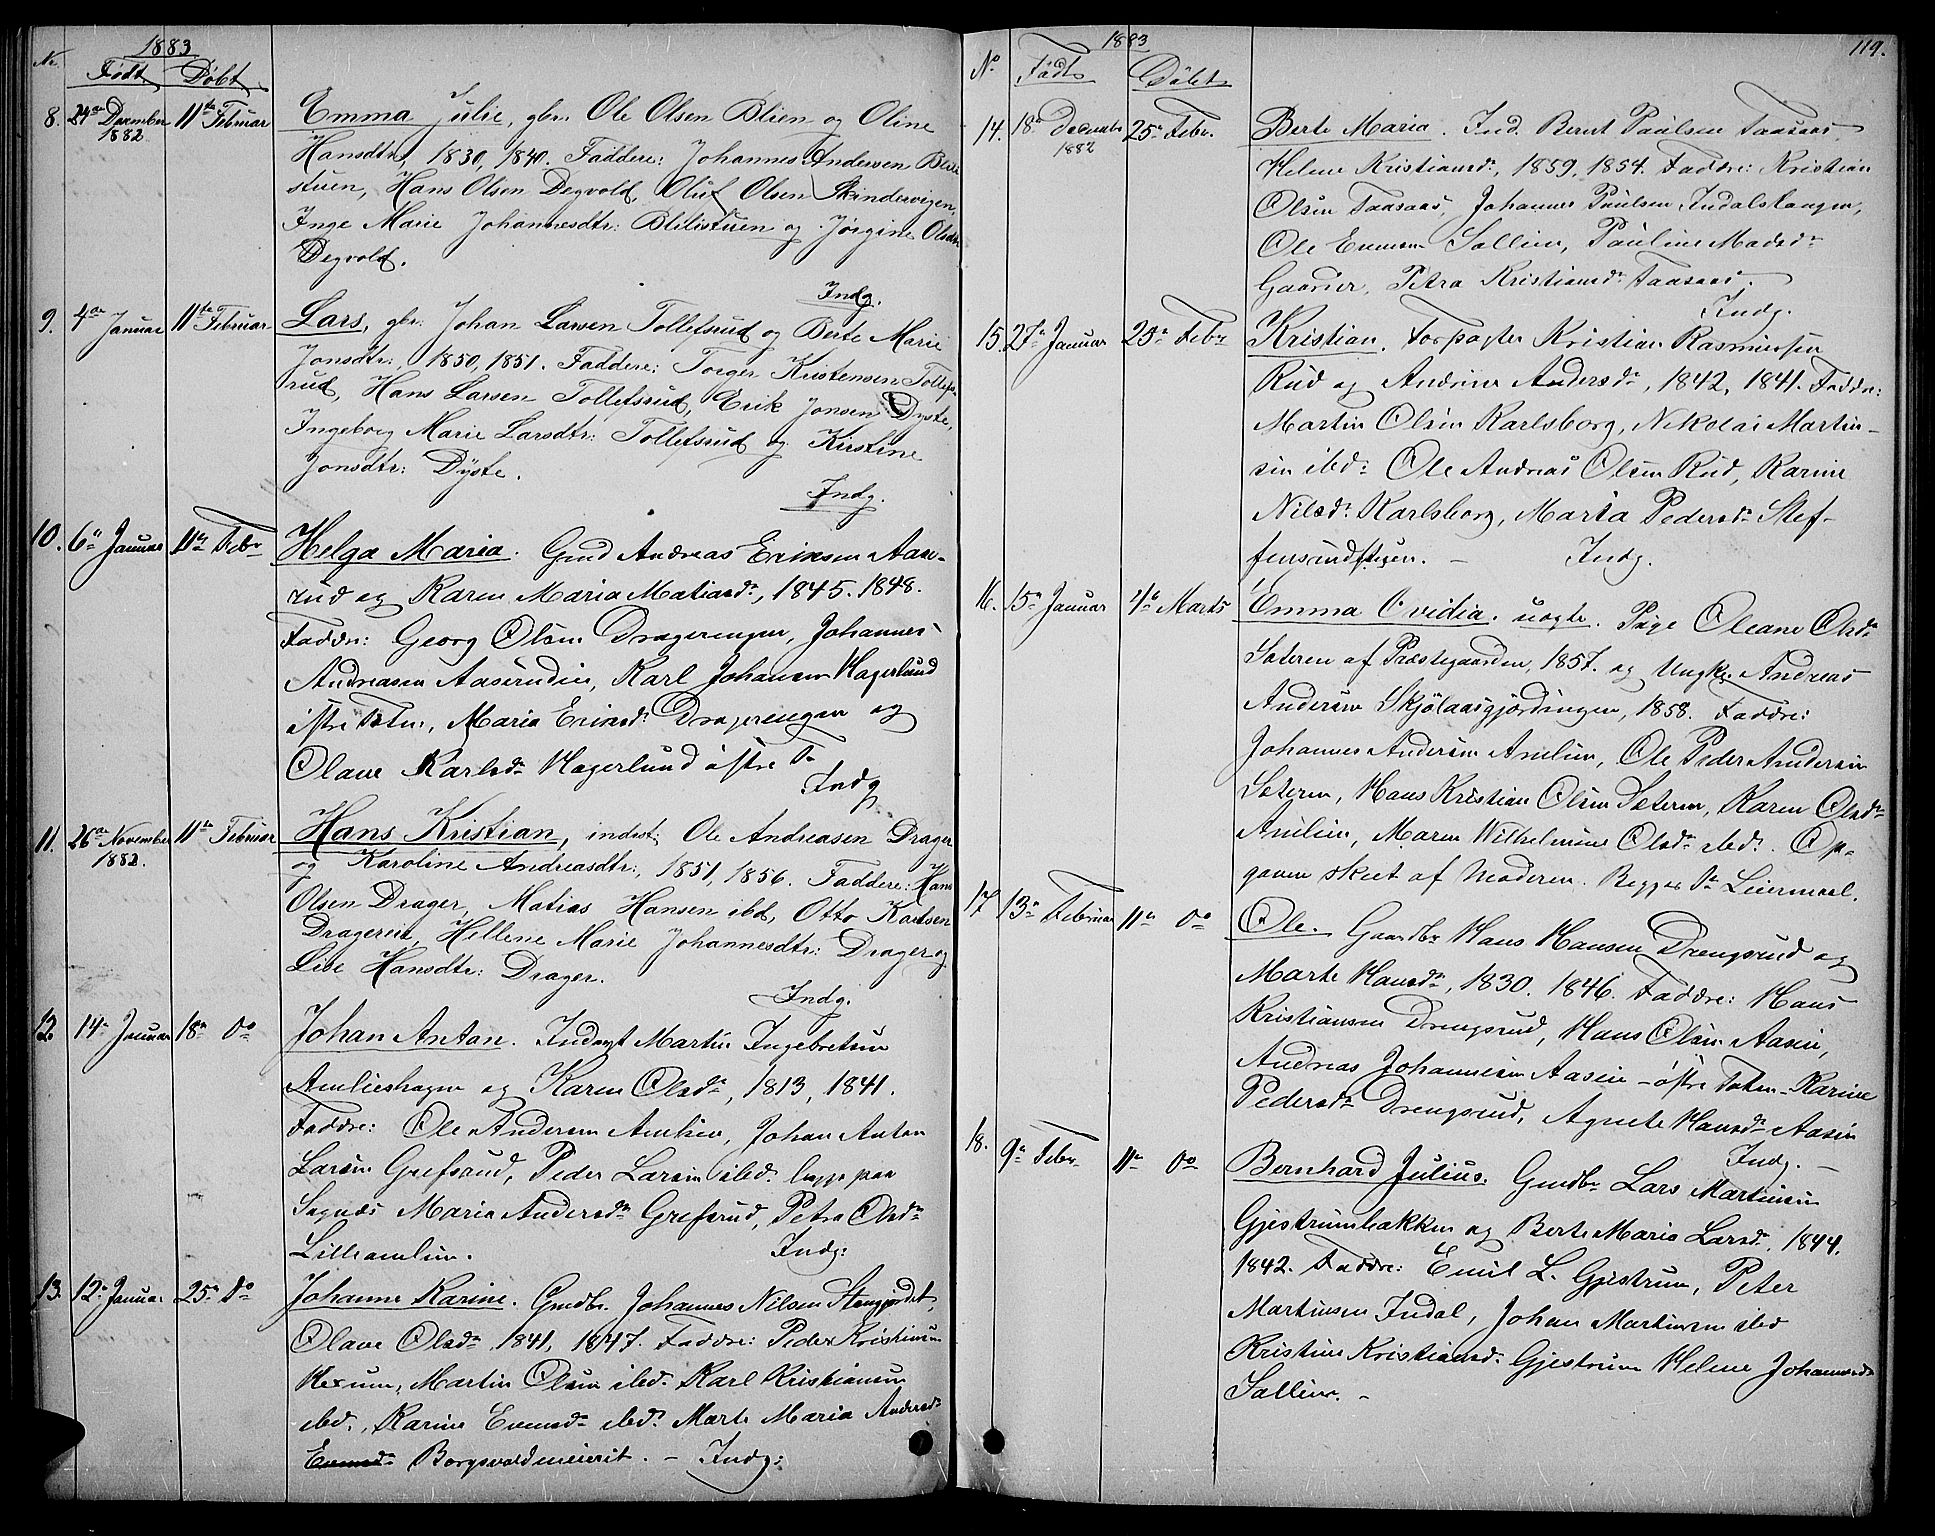 1883
Nr. Født Døbt
8. 24de December 1882 11te Februar
Emma Julie, gbr. Ole Olsen Blien og Oline
Hansdtr, 1830, 1840. Faddere: Johannes Andersen Blili
stuen, Hans Olsen Degvold, Oluf Olsen Skindervigen,
Inge Marie Johannesdtr: Blilistuen og Jørgine Olsdtr
Degvold.
Indg.
9. 4de Januar 11te Februar
Lars, gbr. Johan Larsen Tollefsrud og Berte Marie
Jonsdtr:, 1850, 1851. Faddere: Torger Kristensen Tollefs-
rud, Hans Larsen Tollefsrud, Erik Jonsen Dyste,
Ingeborg Marie Larsdtr: Tollefsrud og Kirstine
Jonsdtr: Dyste.
Indg.
10. 6te Januar 11te Febr
Helga Maria. Gmd Andreas Eriksen Aase-
rud og Karen Maria Matiasdr, 1845. 1848.
Faddre: Georg Olsen Dragerengen, Johannes
Andreasen Aaserudeie, Karl Johansen Hagerlund
østre Toten, Maria Eriksdr Dragerengen og
Olave Karlsdr Hagerlund østre Do
Indg
11. 26de November 1882. 11te Februar
Hans Kristian, inderst; Ole Andreasen Drager
og Karoline Andreasdtr:, 1851, 1856. Faddere: Hans
Olsen Drager, Matias Hansen ibd, Otto Karlsen
Dragereie, Hellene Marie Johannesdtr: Drager og
Live Hansdtr: Drager.
Indg.
12. 14de Januar 18de Do
Johan Antan. Inderst Martin Ingebretsen
Amlieshagen og Karen Olsdr, 1813, 1841.
Faddre: Ole Andersen Amlien, Johan Anton
Larsen Grefsrud, Peder Larsen ibd. begge paa
Sognæs Maria Andersdr Grefsrud, Petra Olsdr
Lilleamlien. Indg:
13. 12te Januar 25de Do
Johanne Karine. Gmdbr. Johannes Nilsen Stengjordet,
Olave Olsdr 1841, 1847. Faddre: Peder Kristiansen
Hexum, Martin Olsen ibd. Karl Kristiansen
ibd., Karine Evensdr ibd. Marte Maria Andersdr
Borgsvoldmeierit. - Indg:
1883
119.
No Født Døbt
14. 18de Decembr 1882 25de Febr.
Berte Maria. Ind. Bernt Paulsen Taasaas,
Helene Kristiansdr, 1859, 1854. Faddre: Kristian
Olsen Taasaas, Johannes Paulsen Indalshaugen,
Ole Evensen Sollien, Pauline Madsdr
Gaarder, Petra Kristiansdr Taasaas.
Indg.
15. 27de Januar 25de Febr
Kristian. Forpagter Kristian Rasmussen
Rud og Andrine Andersdr, 1842, 1841. Faddre:
Martin Olsen Karlsborg, Nikolai Martin-
sen ibd: Ole Andreas Olsen Rud, Karine
Nilsdr. Karlsborg, Maria Pedersdr Stef-
fensrudstuen. - Indg.
16. 15de Januar 4de Marts
Emma Ovidia. uægte. Pige Oleane Olsdr
Sæteren af Præstegaarden, 1857. og Ungkr. Andreas
Andersen Skjølaasgjordingen, 1858. Faddre:
Johannes Andersen Amlien, Ole Peder Andersen
Sæteren, Hans Kristian Olsen Sæteren, Karen Olsdr
Amlien, Maren Wilhelmine Olsdr ibd. Op-
gaven skeet af Moderen. Begges Lste Leiermaal.
17 13de Februar 11te Do
Ole. Gaardbr Hans Hansen Drengsrud og
Marte Hansdr, 1830. 1846. Faddre: Hans
Kristiansen Drengsrud, Hans Olsen Aasen,
Andreas Johannesen Aasen - østre Toten - Karine
Pedersdr Drengsrud, Agnete Hansdr Aasen
Indg. -
18. 9de Febr 11te Do
Bernhard Julius. Gmdbr Lars Martinsen
Gjestrumbakken og Berte Maria Larsdr, 1844.
1842. Faddre: Emil L. Gjestrum, Peter
Martinsen Indal, Johan Martinsen ibd
Kristine Kristiansdr. Gjestrum Helene Johannesdr
Sollien. -